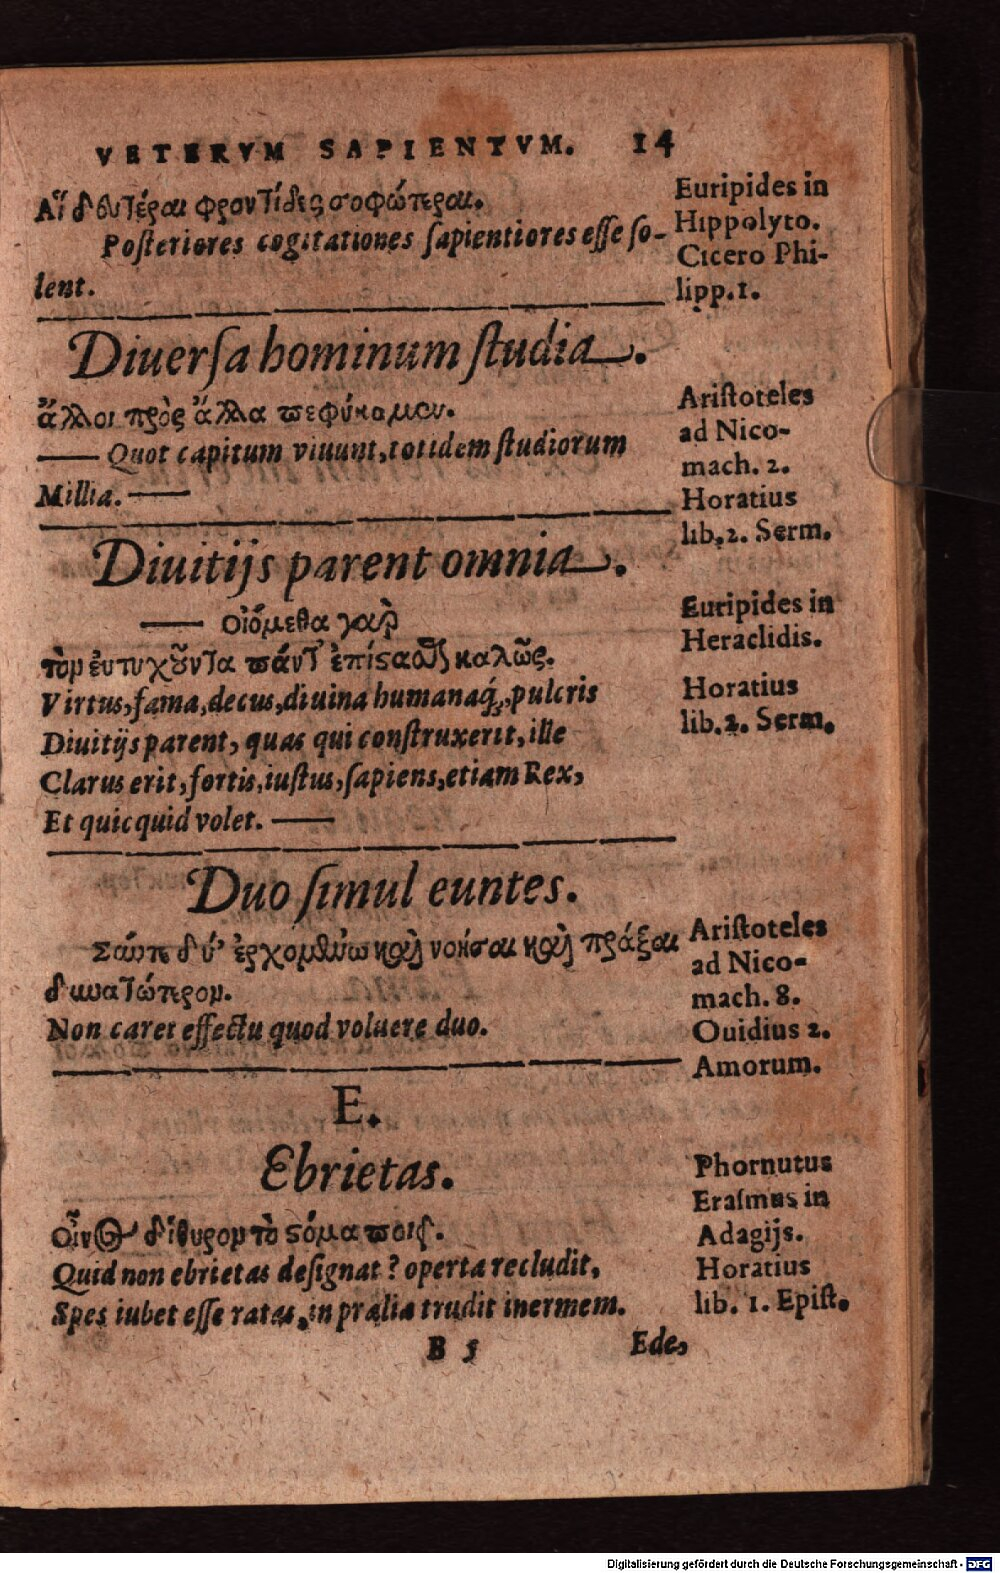 VETERVM SAPIENTVM. 14
Αἵ δευτέραι φροντίδες σοφώτεραι.
Posteriores cogitationes sapientiores esse so-
lent.
Euripides in
Hippolyto.
Cicero Phi-
lipp. 1.
Diuersa hominum studia.
ἄλλοι πρὸς ἄλλα πεφύκαμεν.
Quot capitum viuunt, totidem studiorum
Millia.
Aristoteles
ad Nico-
mach. 2.
Horatius
lib. 2. Serm.
Diuitijs parent omnia.
οἰόμεθα γαρ
τὸν ἐυτυχοῦντα πάντ' ἐπίσασθ καλῶς.
Virtus, fama, decus, diuina humanaq́;, pulcris
Diuitijs parent, quas qui construxerit, ille
Clarus erit, fortis, iustus, sapiens, etiam Rex,
Et quicquid volet.
Euripides in
Heraclidis.
Horatius
lib. 2. Serm.
Duo simul euntes.
Σαύπε δύ' ἐρχομένω καὶ νοῆσαι καὶ πρᾶξαι
δυνατώτερον.
Non caret effectu quod voluere duo.
Aristoteles
ad Nico-
mach. 8.
Ouidius 2.
Amorum.
E.
Ebrietas.
Οἶνος δίθυρον τὸ στόμα ποιεῖ.
Quid non ebrietas designat? operta recludit,
Spes iubet esse ratas, in prælia trudit inermem.
Phornutus
Erasmus in
Adagijs.
Horatius
lib. 1. Epist.
B 5 Ede,
Digitalisierung gefördert durch die Deutsche Forschungsgemeinschaft - DFG